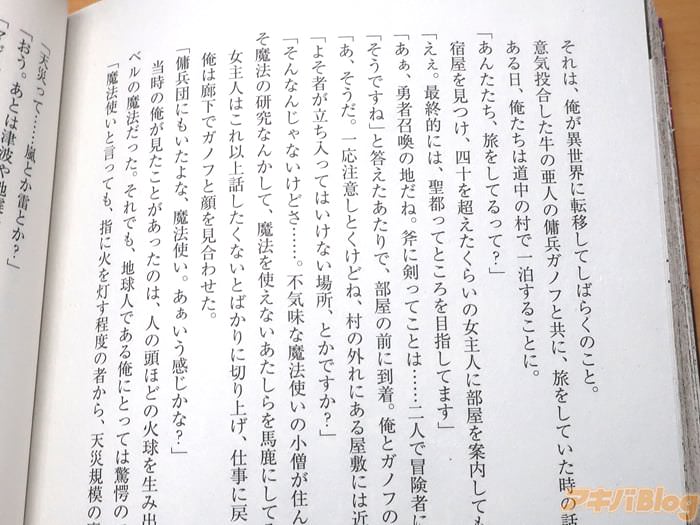 それは、俺が異世界に転移してしばらくのこと。
意気投合した牛の亜人の傭兵ガノフと共に、旅をしていた時の話
ある日、俺たちは道中の村で一泊することに。
「あんたたち、旅をしてるって?」
宿屋を見つけ、四十を超えたくらいの女主人に部屋を案内しても
「ええ。最終的には、聖都ってところを目指してます」
「あぁ、勇者召喚の地だね。斧に剣ってことは……二人で冒険者に
「そうですね」と答えたあたりで、部屋の前に到着。俺とガノフの
「あ、そうだ。一応注意しとくけどね、村の外れにある屋敷には近
「よそ者が立ち入ってはいけない場所、とかですか?」
「そんなんじゃないけどさ……。不気味な魔法使いの小僧が住ん
そ魔法の研究なんかして、魔法を使えないあたしらを馬鹿にしてる
女主人はこれ以上話したくないとばかりに切り上げ、仕事に戻
俺は廊下でガノフと顔を見合わせた。
「傭兵団にもいたよな、魔法使い。あぁいう感じかな?」
当時の俺が見たことがあったのは、人の頭ほどの火球を生み出
ベルの魔法だった。それでも、地球人である俺にとっては驚愕の
「魔法使いと言っても、指に火を灯す程度の者から、天災規模の
「天災って……嵐とか雷とか?」
「おう。あとは津波や地震
アキバBlog